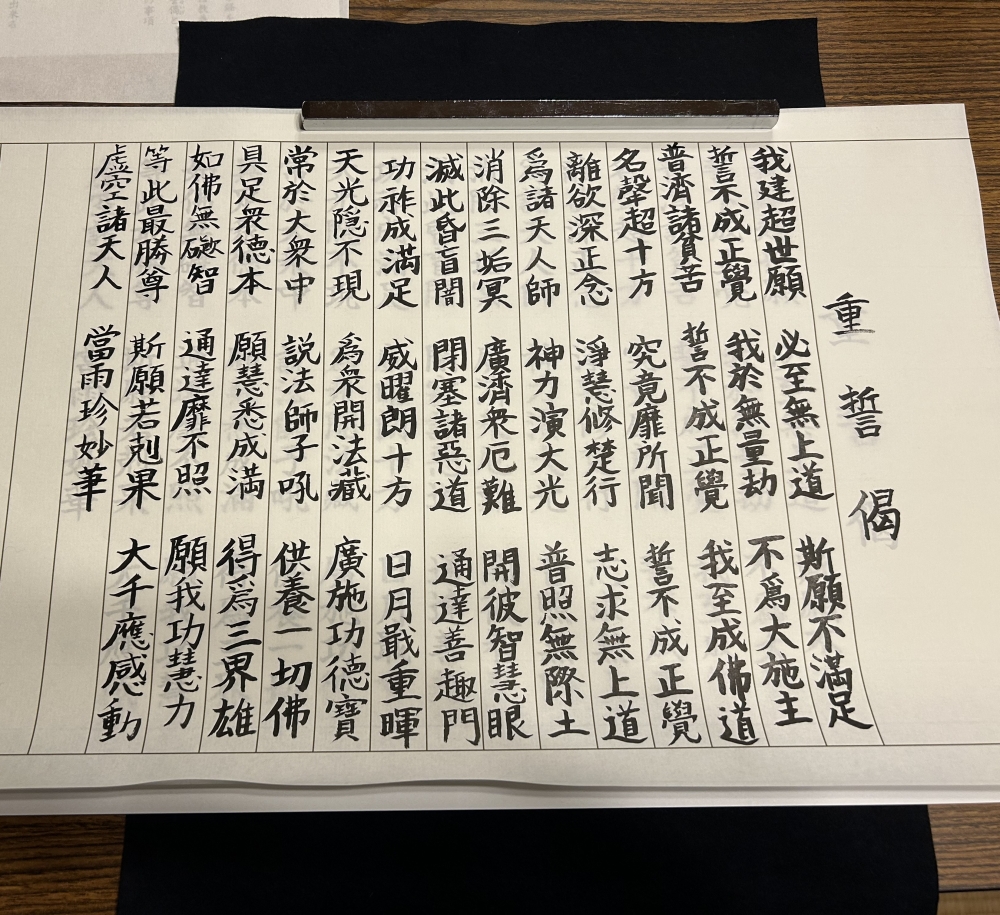 重誓偈
我建超世願 必至無上道 斯願不満足
誓不成正覺 我於無量劫 不爲大施主
普濟諸貧苦 誓不成正覺 我至成佛道
名聲超十方 究竟靡所聞 誓不成正覺
離欲深正念 淨慧修楚行 志求無上道
爲諸天人師 神力演大光 普照無際土
消除三垢冥 廣濟衆厄難 開彼智慧眼
滅此昏盲闇 閉塞諸惡道 通達善趣門
功祚成満足 威曜朗十方 日月戢重暉
天光隠不現 爲衆開法藏 廣施功德寶
常於大衆中 説法師子吼 供養一切佛
具足衆德本 願慧悉成満 得爲三界雄
如佛無礙智 通達靡不照 願我功慧力
等此最勝尊 斯願若剋果 大千應感動
虚空諸天人 當雨珍妙筆